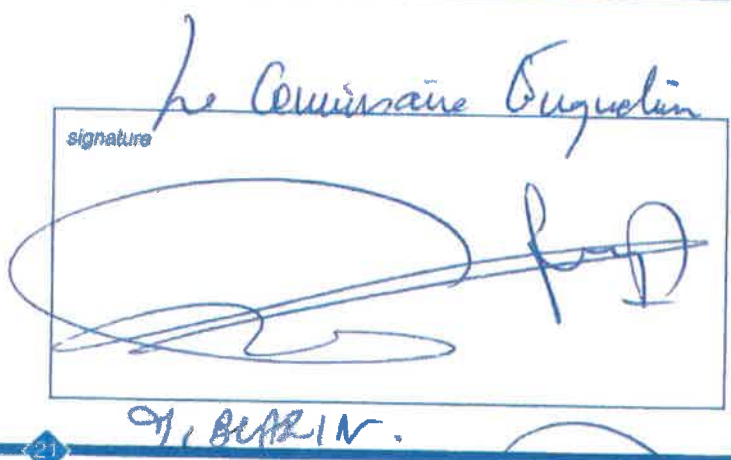 Le Commissaire Enquêteur
signature
21